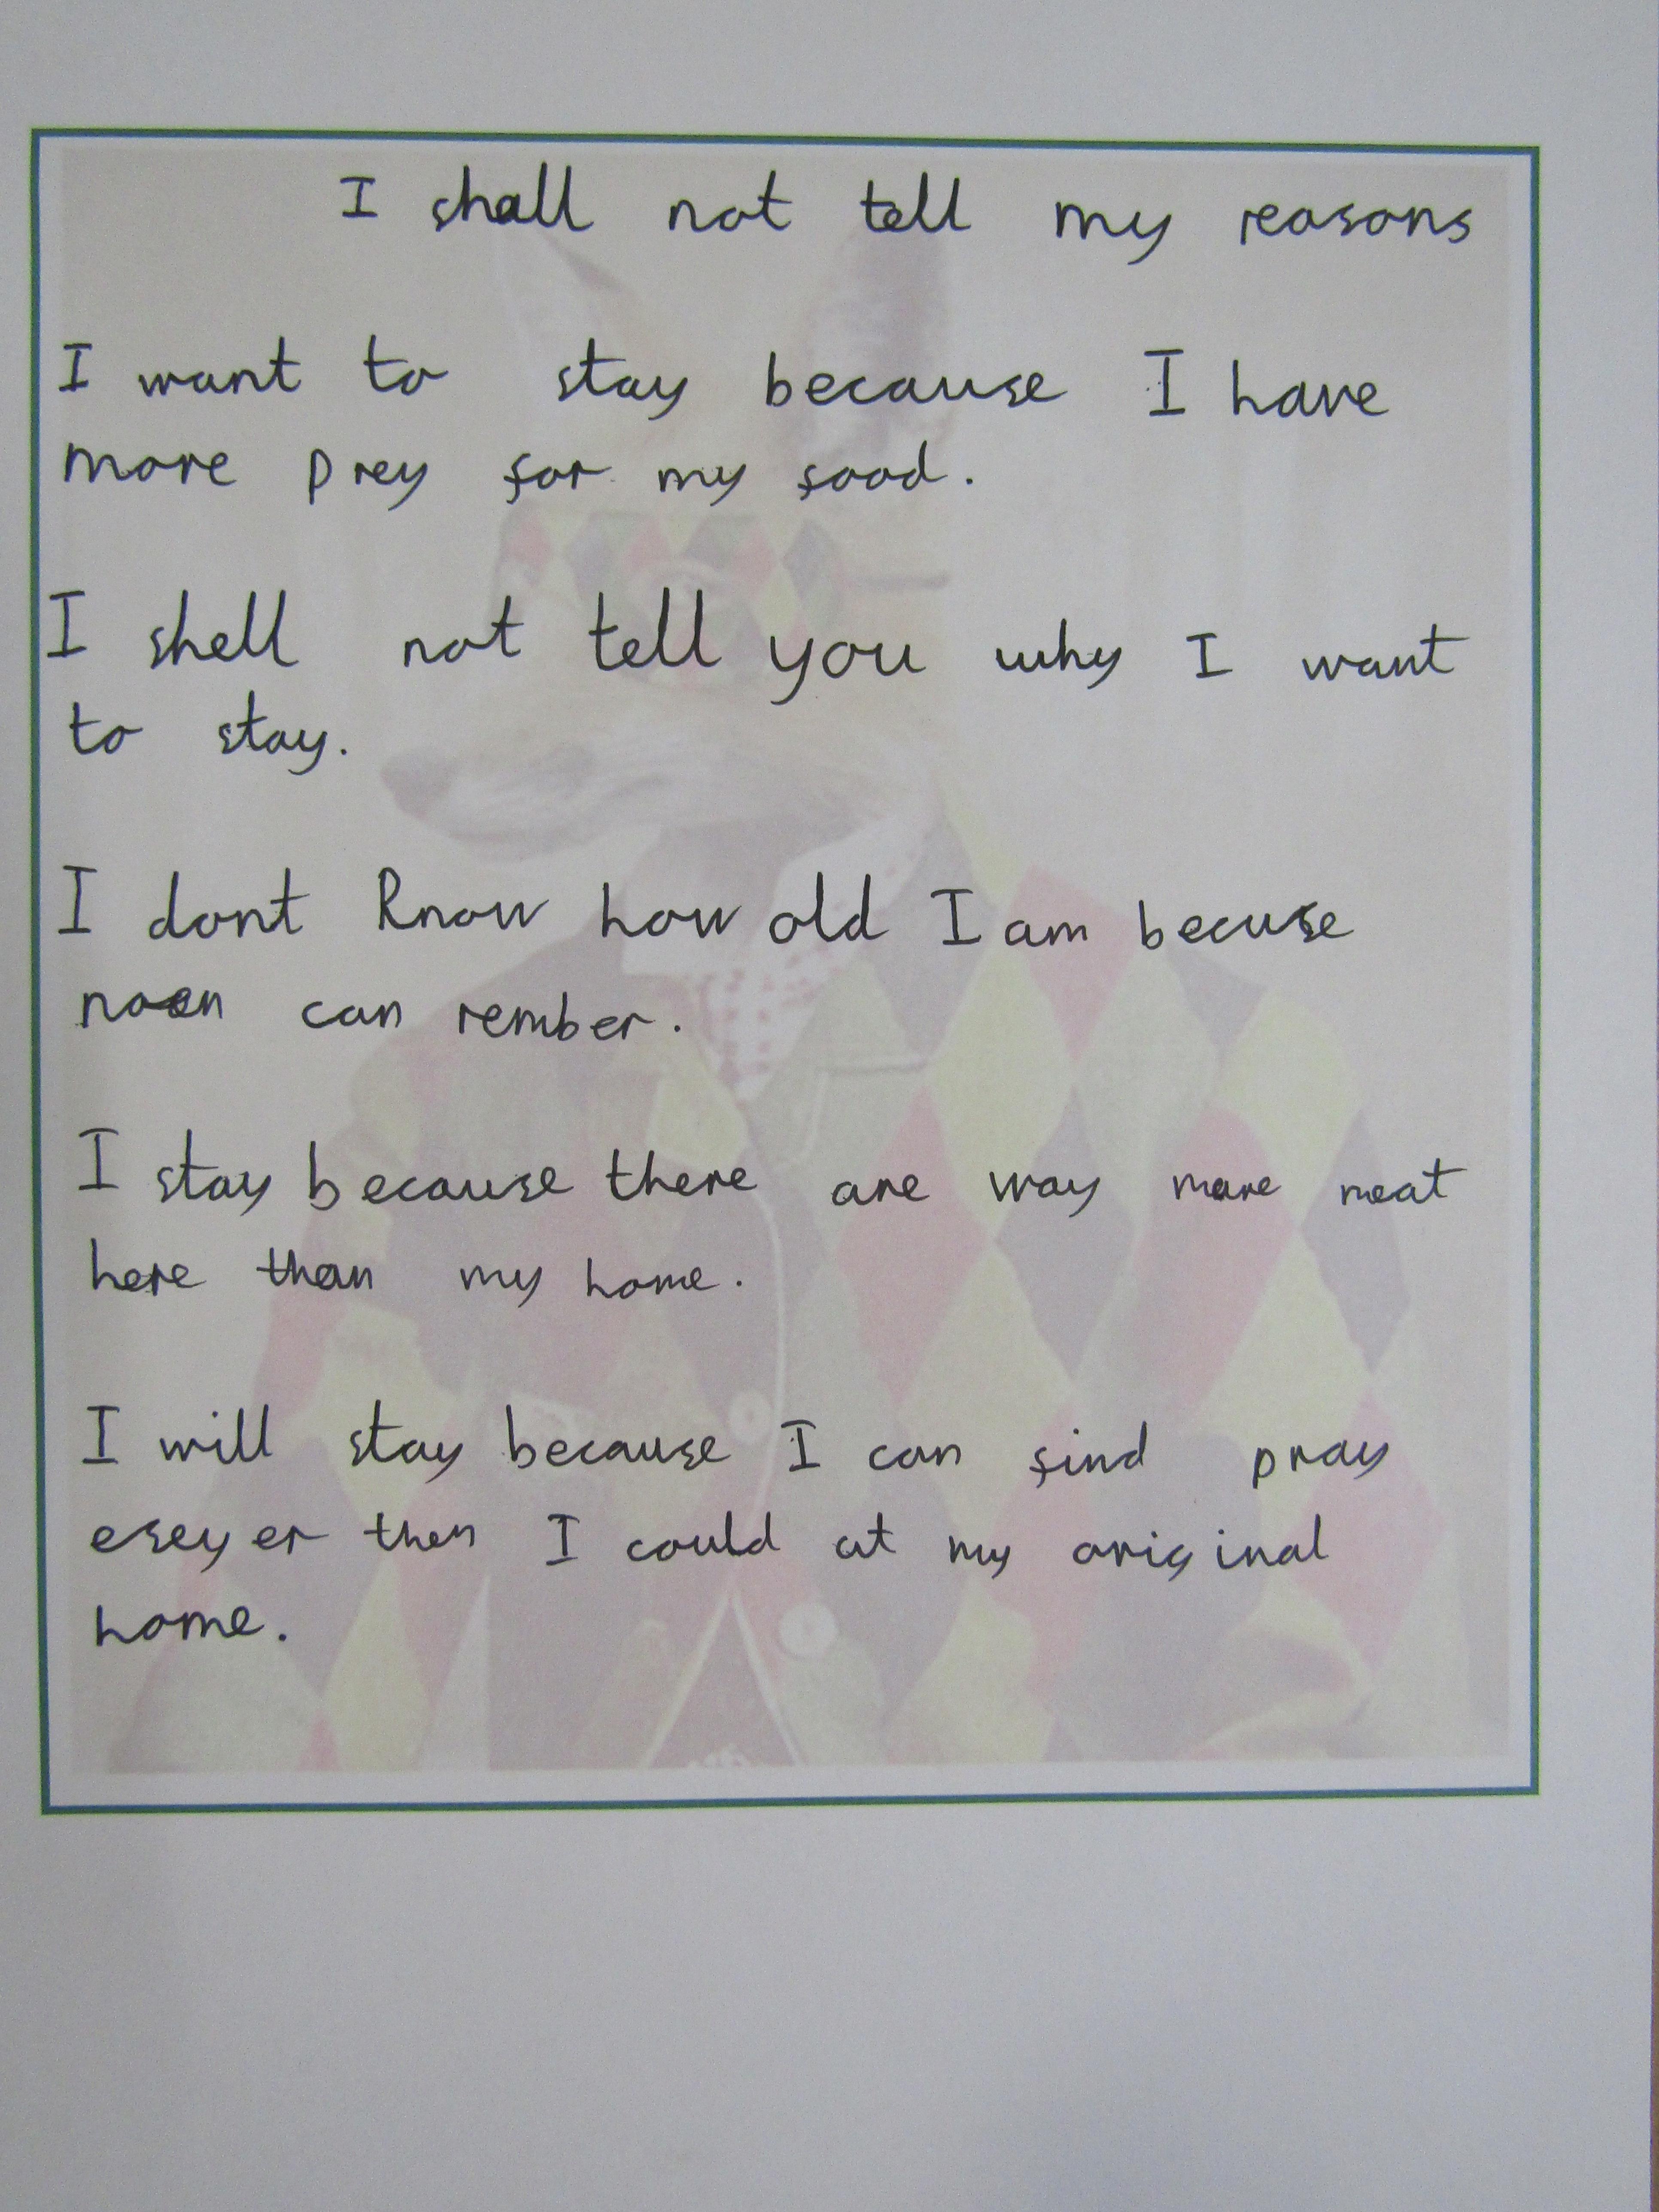 I shall not tell my reasons
I want to stay because I have
more prey for my food.
I shell not tell you why I want
to stay.
I dont know how old I am becuse
noen can rember.
I stay because there are way more meat
here than my home.
I will stay because I can find pray
eseyer then I could at my original
home.